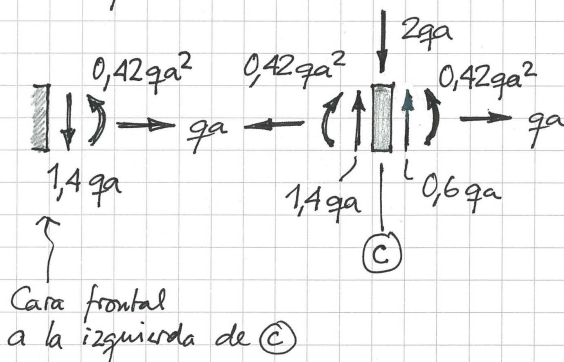 2qa
0,42qa² 0,42qa² 0,42qa²
qa qa
1,4qa 1,4qa 0,6qa
C
Cara frontal
a la izquierda de C